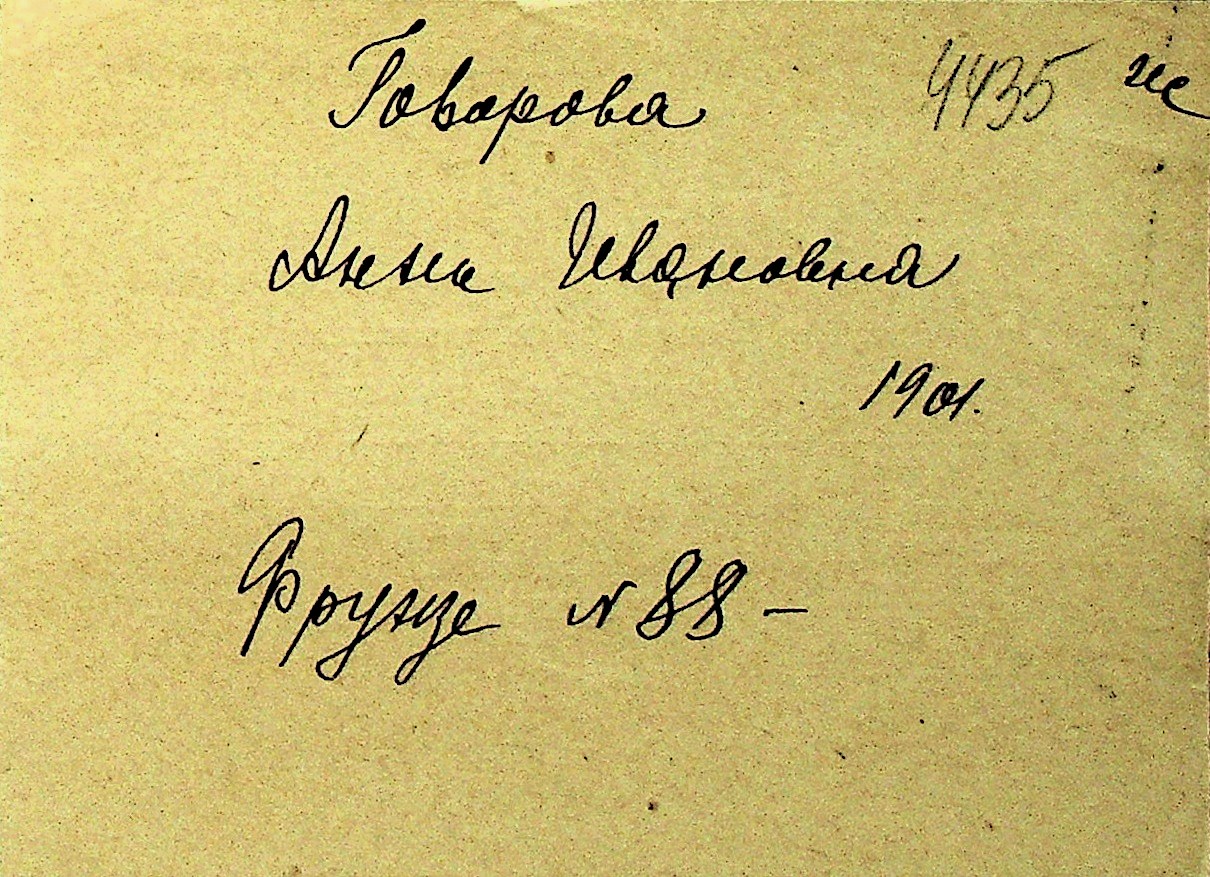 Говорова 4435 же
Анна Ивановна
1901.
Фрунзе № 88 –